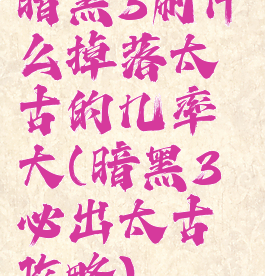 暗黑3刷什
么掉落太
古的几率
大(暗黑3
必出太古
攻略)